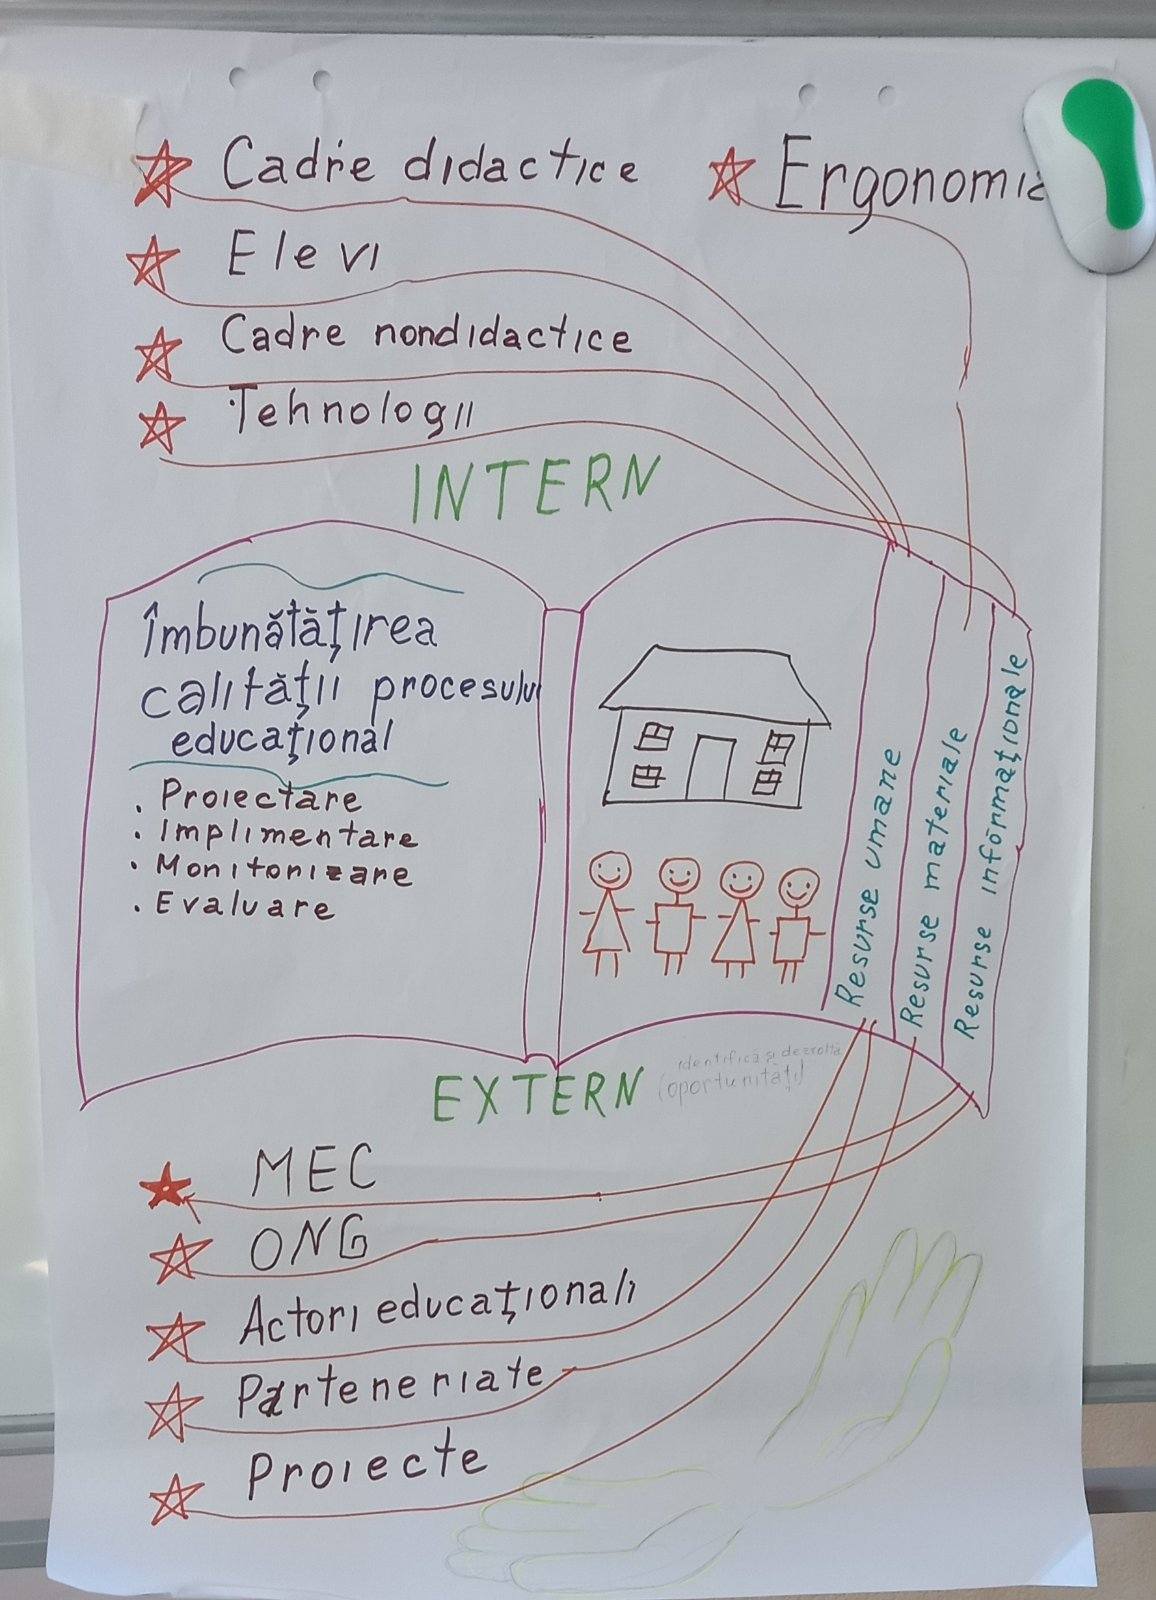 Cadre didactice
Ergonomia
Elevi
Cadre nondidactice
Tehnologii
INTERN
Îmbunătățirea
calității procesului
educațional
. Proiectare
. Implimentare
. Monitorizare
. Evaluare
Resurse umane
Resurse materiale
Resurse informaționale
identifică și dezroltă
(oportunități)
EXTERN
MEC
ONG
Actori educaționali
Parteneriate
Proiecte